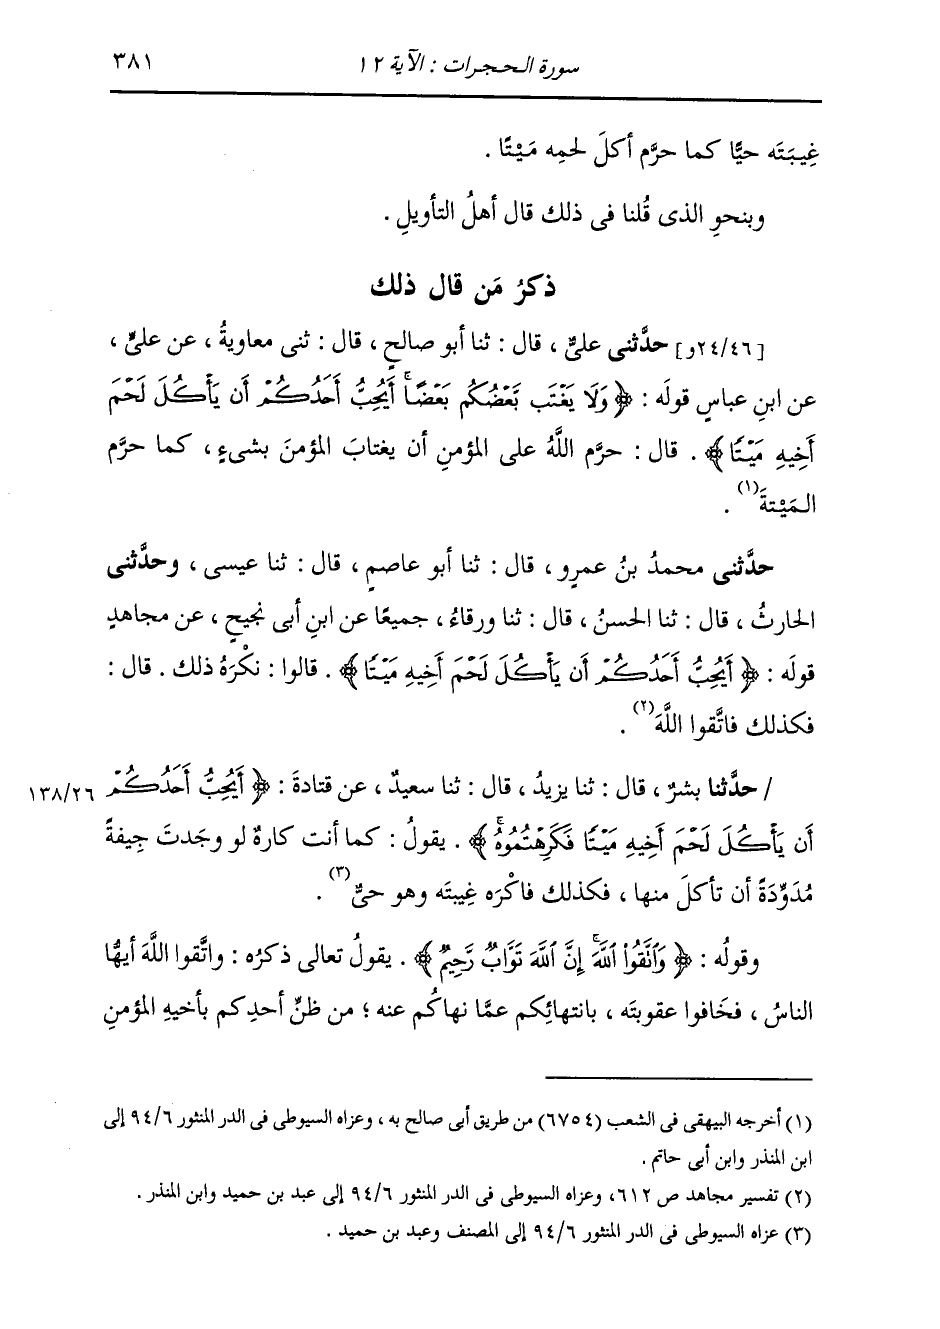 سورة الحجرات : الآية ١٢ ٣٨١
غِيبَتَه حيًّا كما حرَّم أكلَ لحمِه مَيْتًا .
وبنحوِ الذى قُلنا فى ذلك قال أهلُ التأويلِ .
ذكرُ مَن قال ذلك
[٢٤/٤٦و] حدَّثنى علىٌّ ، قال : ثنا أبو صالحٍ ، قال : ثنى معاويةُ ، عن علىٍّ ،
عن ابنِ عباسٍ قولَه : ﴿ وَلَا يَغْتَب بَّعْضُكُم بَعْضًاۚ أَيُحِبُّ أَحَدُكُمْ أَن يَأْكُلَ لَحْمَ
أَخِيهِ مَيْتًا ﴾ . قال : حرَّم اللَّهُ على المؤمنِ أن يغتابَ المؤمنَ بشىءٍ ، كما حرَّم
المَيْتةَ(١) .
حدَّثنى محمدُ بنُ عمرٍو ، قال : ثنا أبو عاصمٍ ، قال : ثنا عيسى ، وحدَّثنى
الحارثُ ، قال : ثنا الحسنُ ، قال : ثنا ورقاءُ ، جميعًا عن ابنِ أبى نجيحٍ ، عن مجاهدٍ
قولَه : ﴿ أَيُحِبُّ أَحَدُكُمْ أَن يَأْكُلَ لَحْمَ أَخِيهِ مَيْتًا ﴾ . قالوا : نكْرَهُ ذلك . قال :
فكذلك فاتَّقوا اللَّهَ(٢) .
/ حدَّثنا بشرٌ ، قال : ثنا يزيدُ ، قال : ثنا سعيدٌ ، عن قتادةَ : ﴿ أَيُحِبُّ أَحَدُكُمْ ١٣٨/٢٦
أَن يَأْكُلَ لَحْمَ أَخِيهِ مَيْتًا فَكَرِهْتُمُوهُۚ ﴾ . يقولُ : كما أنت كارهٌ لو وجَدتَ جِيفةً
مُدَوِّدَةً أن تأكلَ منها ، فكذلك فاكْرَه غِيبتَه وهو حىٌّ(٣) .
وقولُه : ﴿ وَاتَّقُوا۟ اللَّهَۚ إِنَّ اللَّهَ تَوَّابٌ رَّحِيمٌ ﴾ . يقولُ تعالى ذكرُه : واتَّقوا اللَّهَ أيهُّا
الناسُ ، فخَافوا عقوبتَه ، بانتهائِكم عمَّا نهاكُم عنه ؛ من ظنِّ أحدِكم بأخيهِ المؤمنِ
(١) أخرجه البيهقى فى الشعب (٦٧٥٤) من طريق أبى صالح به ، وعزاه السيوطى فى الدر المنثور ٩٤/٦ إلى
ابن المنذر وابن أبى حاتم .
(٢) تفسير مجاهد ص ٦١٢، وعزاه السيوطى فى الدر المنثور ٩٤/٦ إلى عبد بن حميد وابن المنذر .
(٣) عزاه السيوطى فى الدر المنثور ٩٤/٦ إلى المصنف وعبد بن حميد .